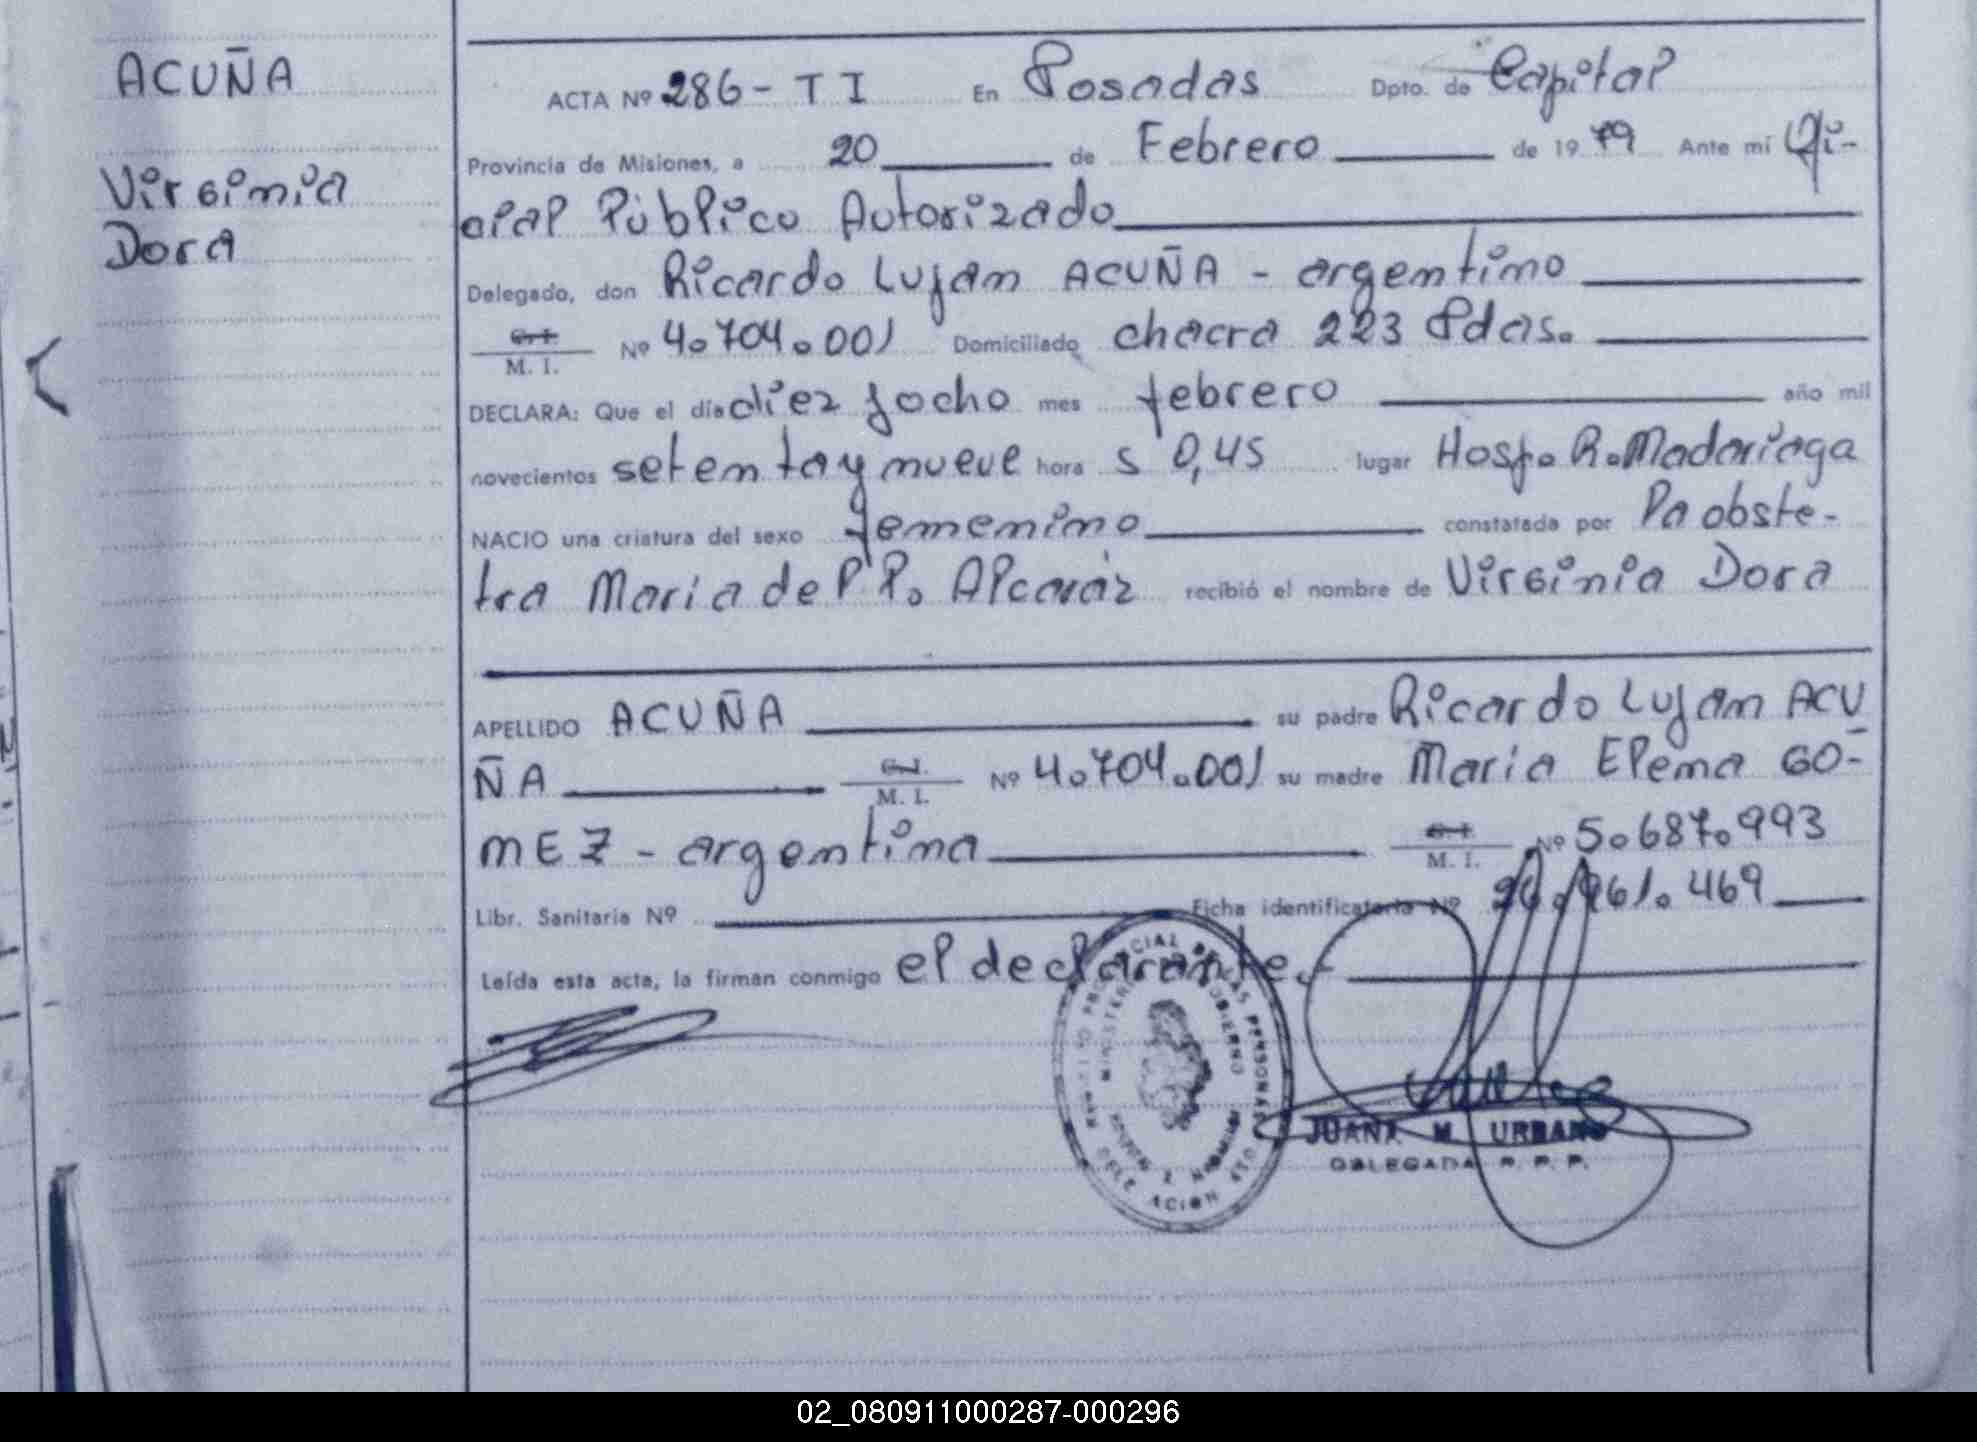 ACUÑA
Virginia
Dora
ACTA Nº 286 - T I En Posadas Dpto. de Capital
Provincia de Misiones, a 20 de Febrero de 1979 Ante mí Ofi-
cial Público Autorizado
Delegado, don Ricardo Luján ACUÑA - argentino
C. I. M. I. Nº 4.704.001 Domiciliado chacra 223 Pdas.
DECLARA: Que el día diez y ocho mes febrero año mil
novecientos setenta y nueve hora s 0,45 lugar Hosp. R. Madariaga
NACIO una criatura del sexo femenino constatada por la obste-
tra María del P. Alcaráz recibió el nombre de Virginia Dora
APELLIDO ACUÑA su padre Ricardo Luján ACU
ÑA C. I. M. I. Nº 4.704.001 su madre María Elena GO-
MEZ - argentina C. I. M. I. Nº 5.687.993
Libr. Sanitaria Nº Ficha identificatoria Nº 26.961.469
Leída esta acta, la firman conmigo el declarante.-
JUANA M. URBANO
DELEGADA R. P. P.
02_080911000287-000296